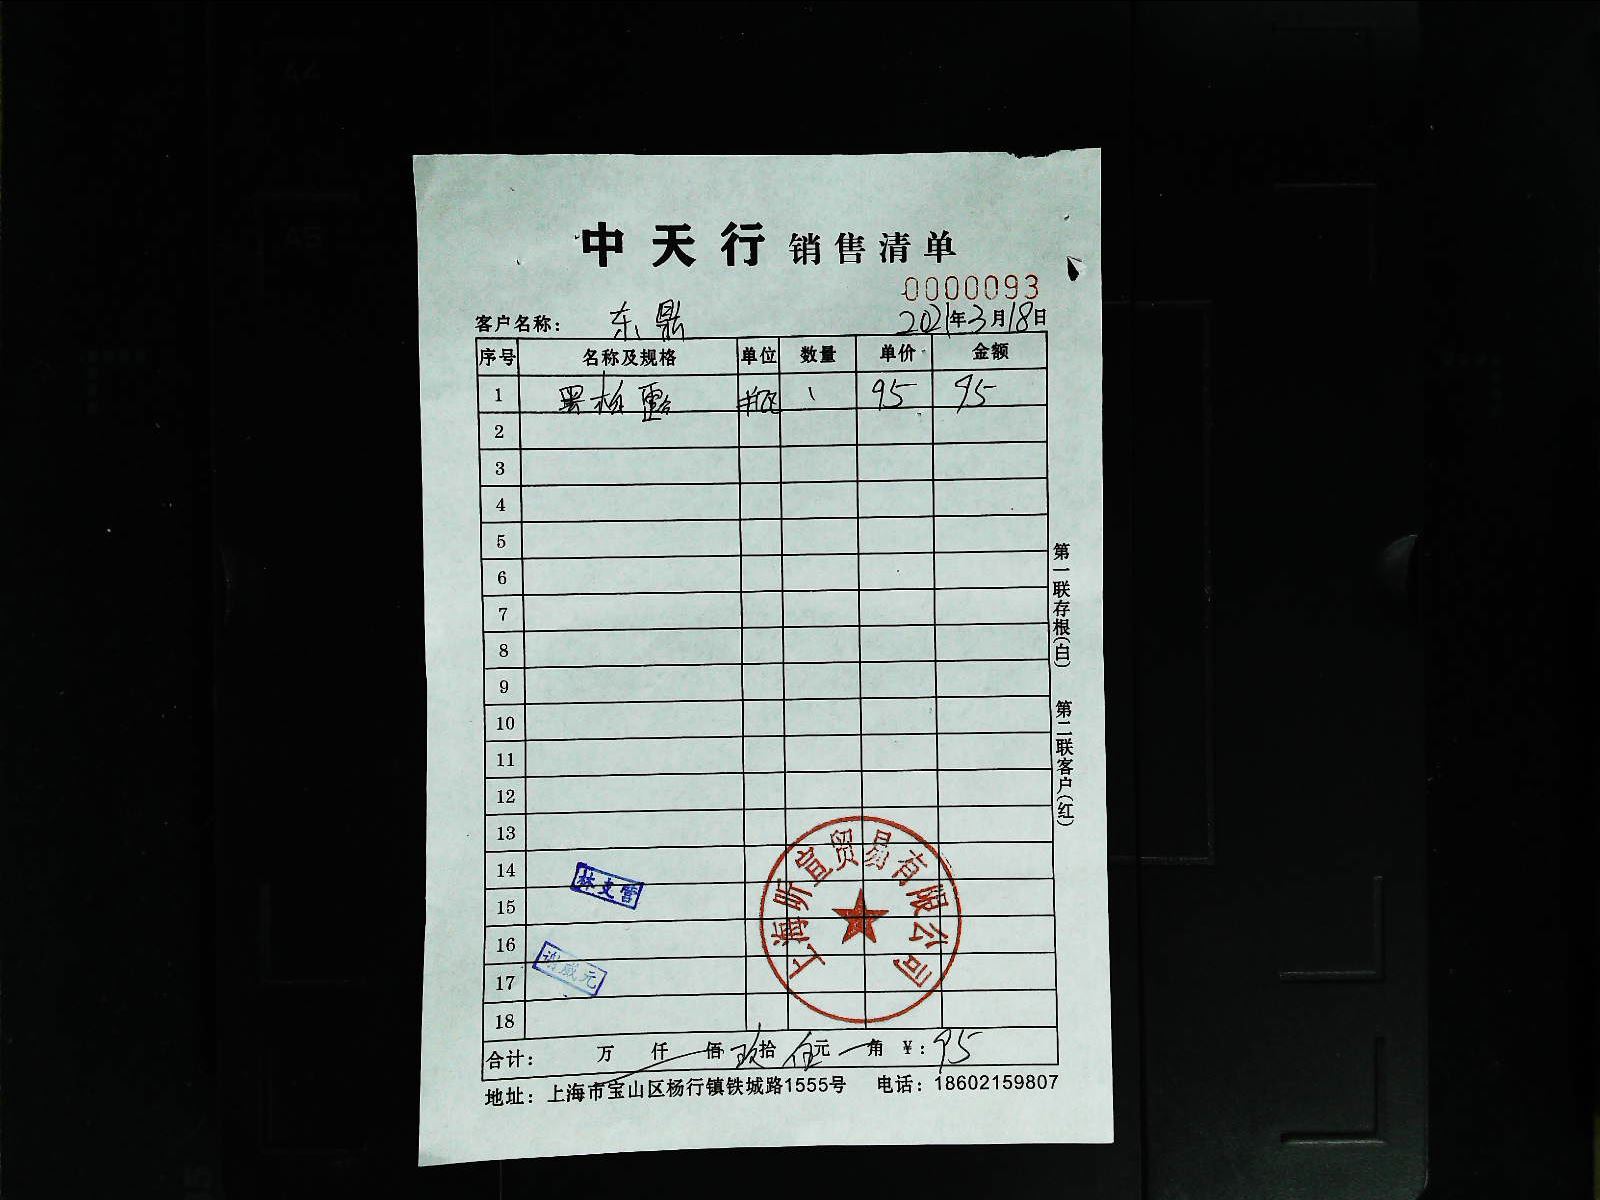 中天行 销售清单
0000093
客户名称： 东鼎
2021年3月18日
序号 名称及规格 单位 数量 单价 金额
1 黑桂 瓶 1 95 95
2
3
4
5
6
7
8
9
10
11
12
13
14
15
16
17
18
林文营
谢威元
上海昕宣贸易有限公司
合计： 万 仟 佰 玖拾 伍元 角 ￥：95
地址：上海市宝山区杨行镇铁城路1555号 电话：18602159807
第一联存根(白)
第二联客户(红)